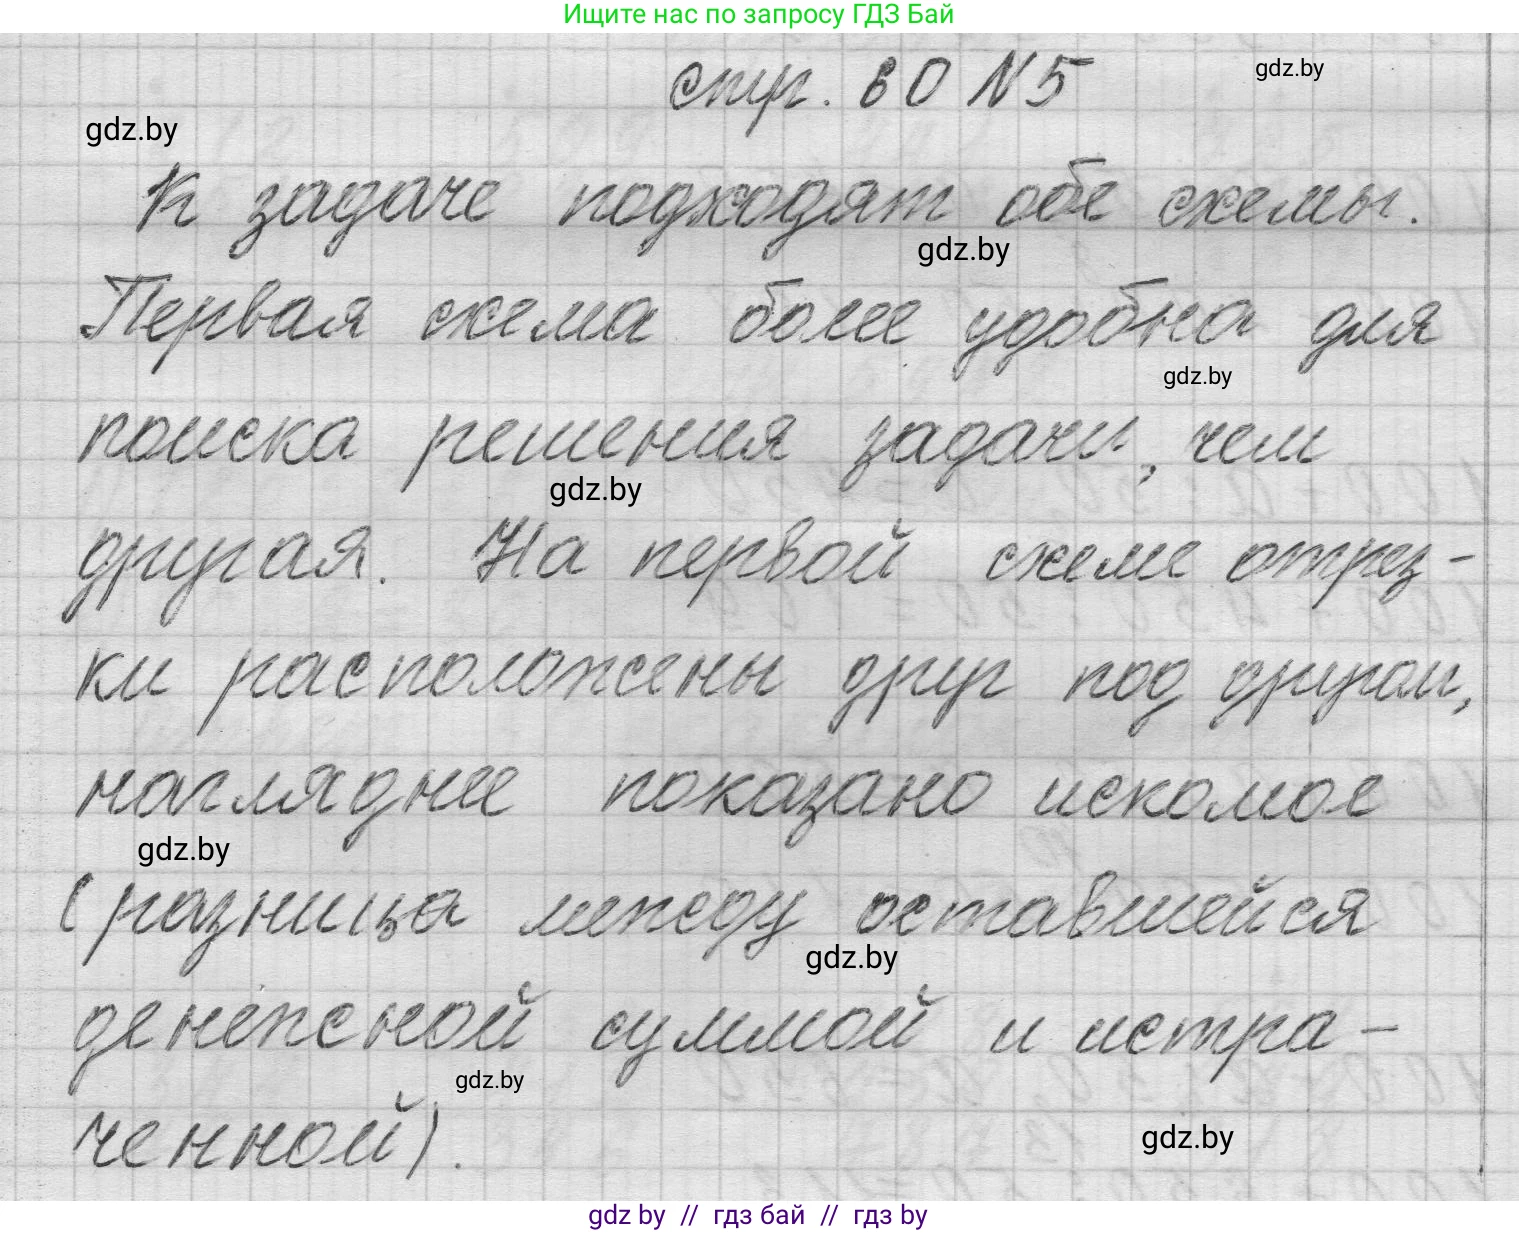 Ищите нас по запросу ГДЗ Бай
стр. 60 N5
gdz.by
gdz.by
К задаче подходят обе схемы.
gdz.by
Первая схема более удобна для
gdz.by
поиска решения задачи, чем
gdz.by
другая. На первой схеме отрез-
ки расположены друг под другом,
нагляднее показано искомое
gdz.by
(разница между оставшейся
gdz.by
денежной суммой и истра-
gdz.by
ченной).
gdz.by
gdz by // гдз бай // гдз by